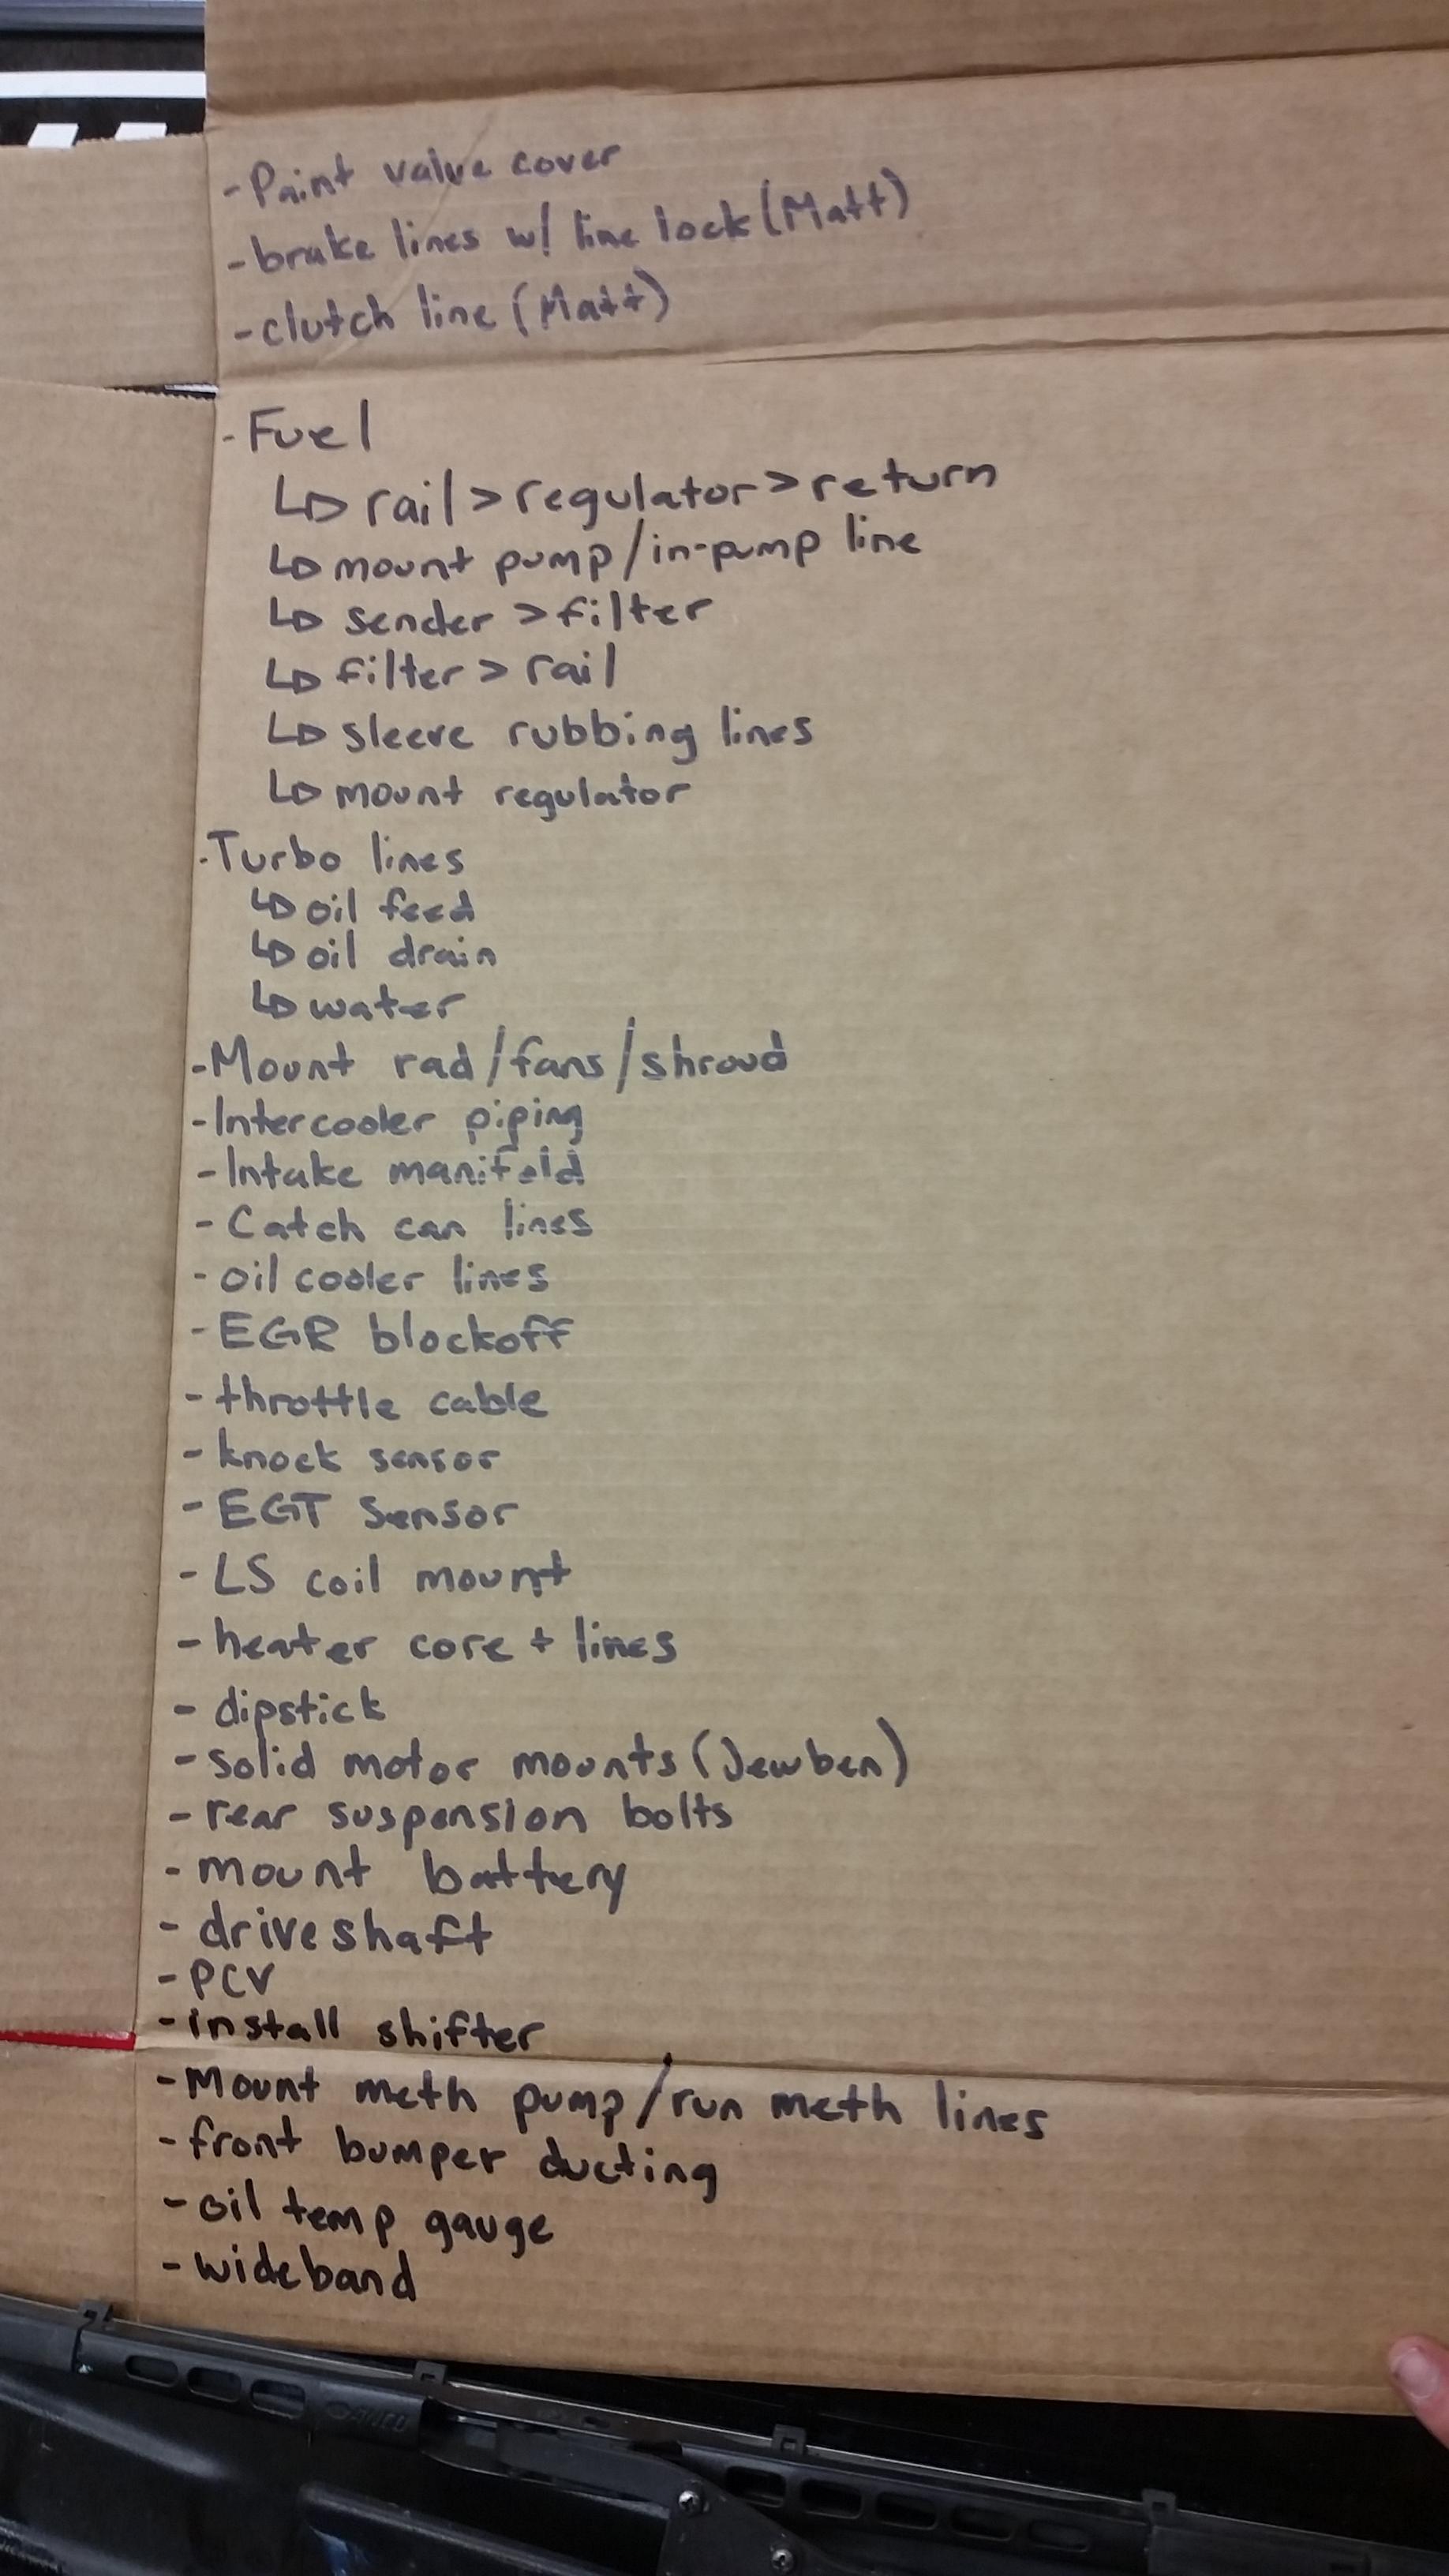 - Paint valve cover
- brake lines w/ line lock (Matt)
- clutch line (Matt)
- Fuel
↳ rail > regulator > return
↳ mount pump/in-pump line
↳ sender > filter
↳ filter > rail
↳ sleeve rubbing lines
↳ mount regulator
- Turbo lines
↳ oil feed
↳ oil drain
↳ water
- Mount rad/fans/shroud
- Intercooler piping
- Intake manifold
- Catch can lines
- oil cooler lines
- EGR blockoff
- throttle cable
- knock sensor
- EGT sensor
- LS coil mount
- heater core + lines
- dipstick
- solid motor mounts (Jewben)
- rear suspension bolts
- mount battery
- driveshaft
- PCV
- install shifter
- Mount meth pump/run meth lines
- front bumper ducting
- oil temp gauge
- wideband